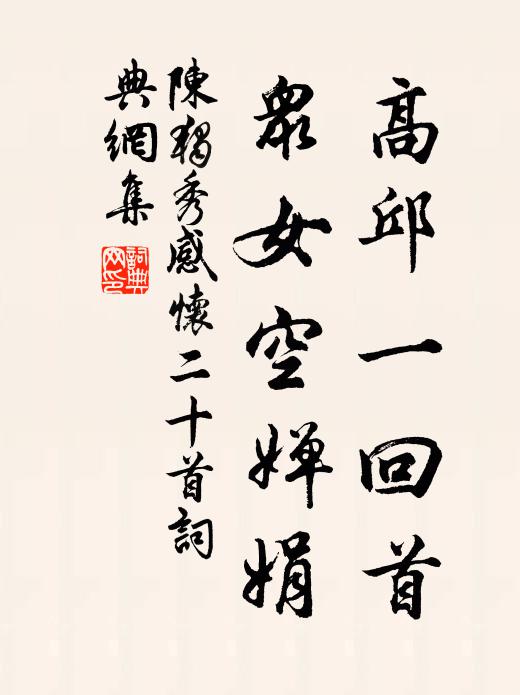 高邱一回首
眾女空嬋娟
陳獨秀感懷二十首詞
典網集
詞典
网印